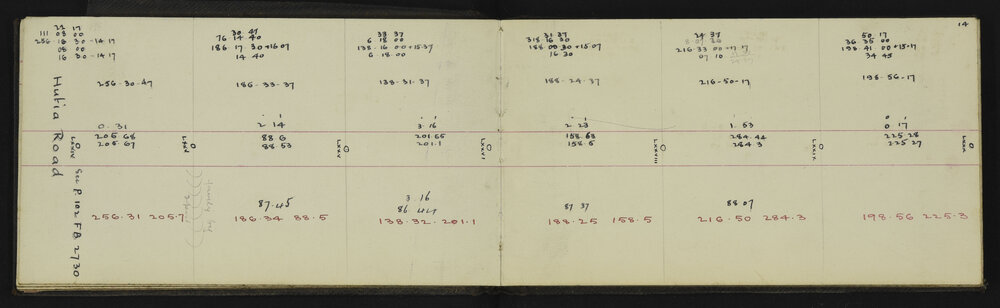 14
22 17
111 08 00
256 16 30 -14 17
08 00
16 30 -14 17
256-30-47
0.31
205 68
205 67
256.31 205.7
Hutia Road
See P. 102 F B 2730
LXXXIV
30 47
76 14 40
186 17 30 +16 07
14 40
186-33-37
2 14
88.6
88 53
LXXXV
87.45
186.34 88.5
33 37
6 18 00
138-16 00 +15.37
6 18 00
138-31-37
3 16
201.65
201.1
LXXXVI
3 16
138.32.201.1
31 37
318 16 30
188 09 30 +15.07
16 30
188-24-37
2 23
158.63
158.5
LXXXVIII
87 37
188.25 158.5
24 37
216-33 00 +17 17
07 10
216-50-17
1 53
284.44
284.3
LXXXIX
88 07
216.50 284.3
50 17
36 35 00
198 41 00 +15-17
34 45
198-56-17
0 17
225 28
225 27
LXXXX
198.56 225.3